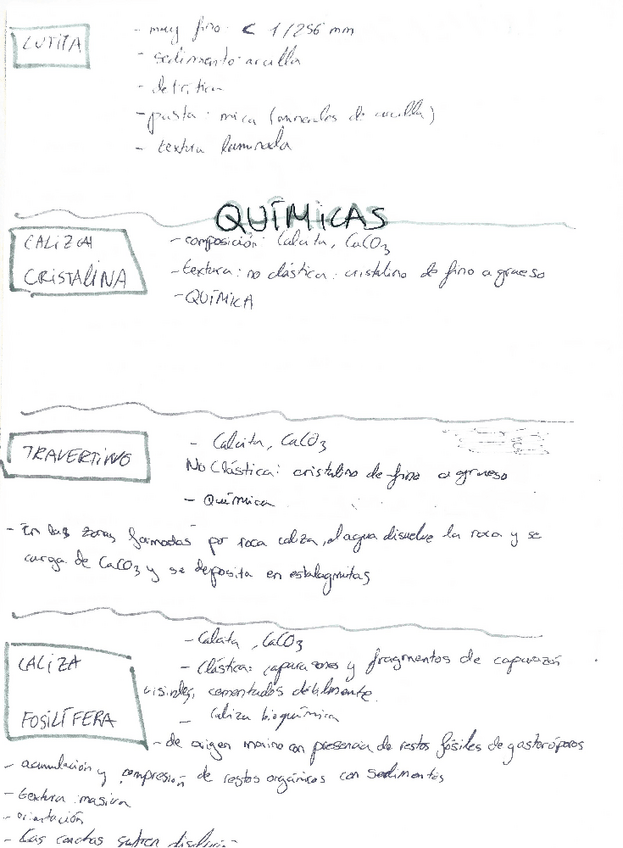 LUTITA
- muy fino: < 1/256 mm
- sedimento: arcilla
- detrítica
- pasta: mica (minerales de arcilla)
- textura laminada
QUÍMICAS
CALIZA
CRISTALINA
- composición: Calcita, CaCO3
- textura: no clástica: cristalino de fino a grueso
- QUÍMICA
TRAVERTINO
- Calcita, CaCO3
No Clástica: cristalino de fino a grueso
- Química
- En las zonas formadas por roca caliza, el agua disuelve la roca y se
carga de CaCO3 y se deposita en estalagmitas
CALIZA
FOSILÍFERA
- Calcita, CaCO3
- Clástica: caparazones y fragmentos de caparazón
visibles, cementados débilmente.
- Caliza bioquímica
- de origen marino con presencia de restos fósiles de gasterópodos
- acumulación y compresión de restos orgánicos con sedimentos
- textura masiva
- orientación
- Las conchas sufren